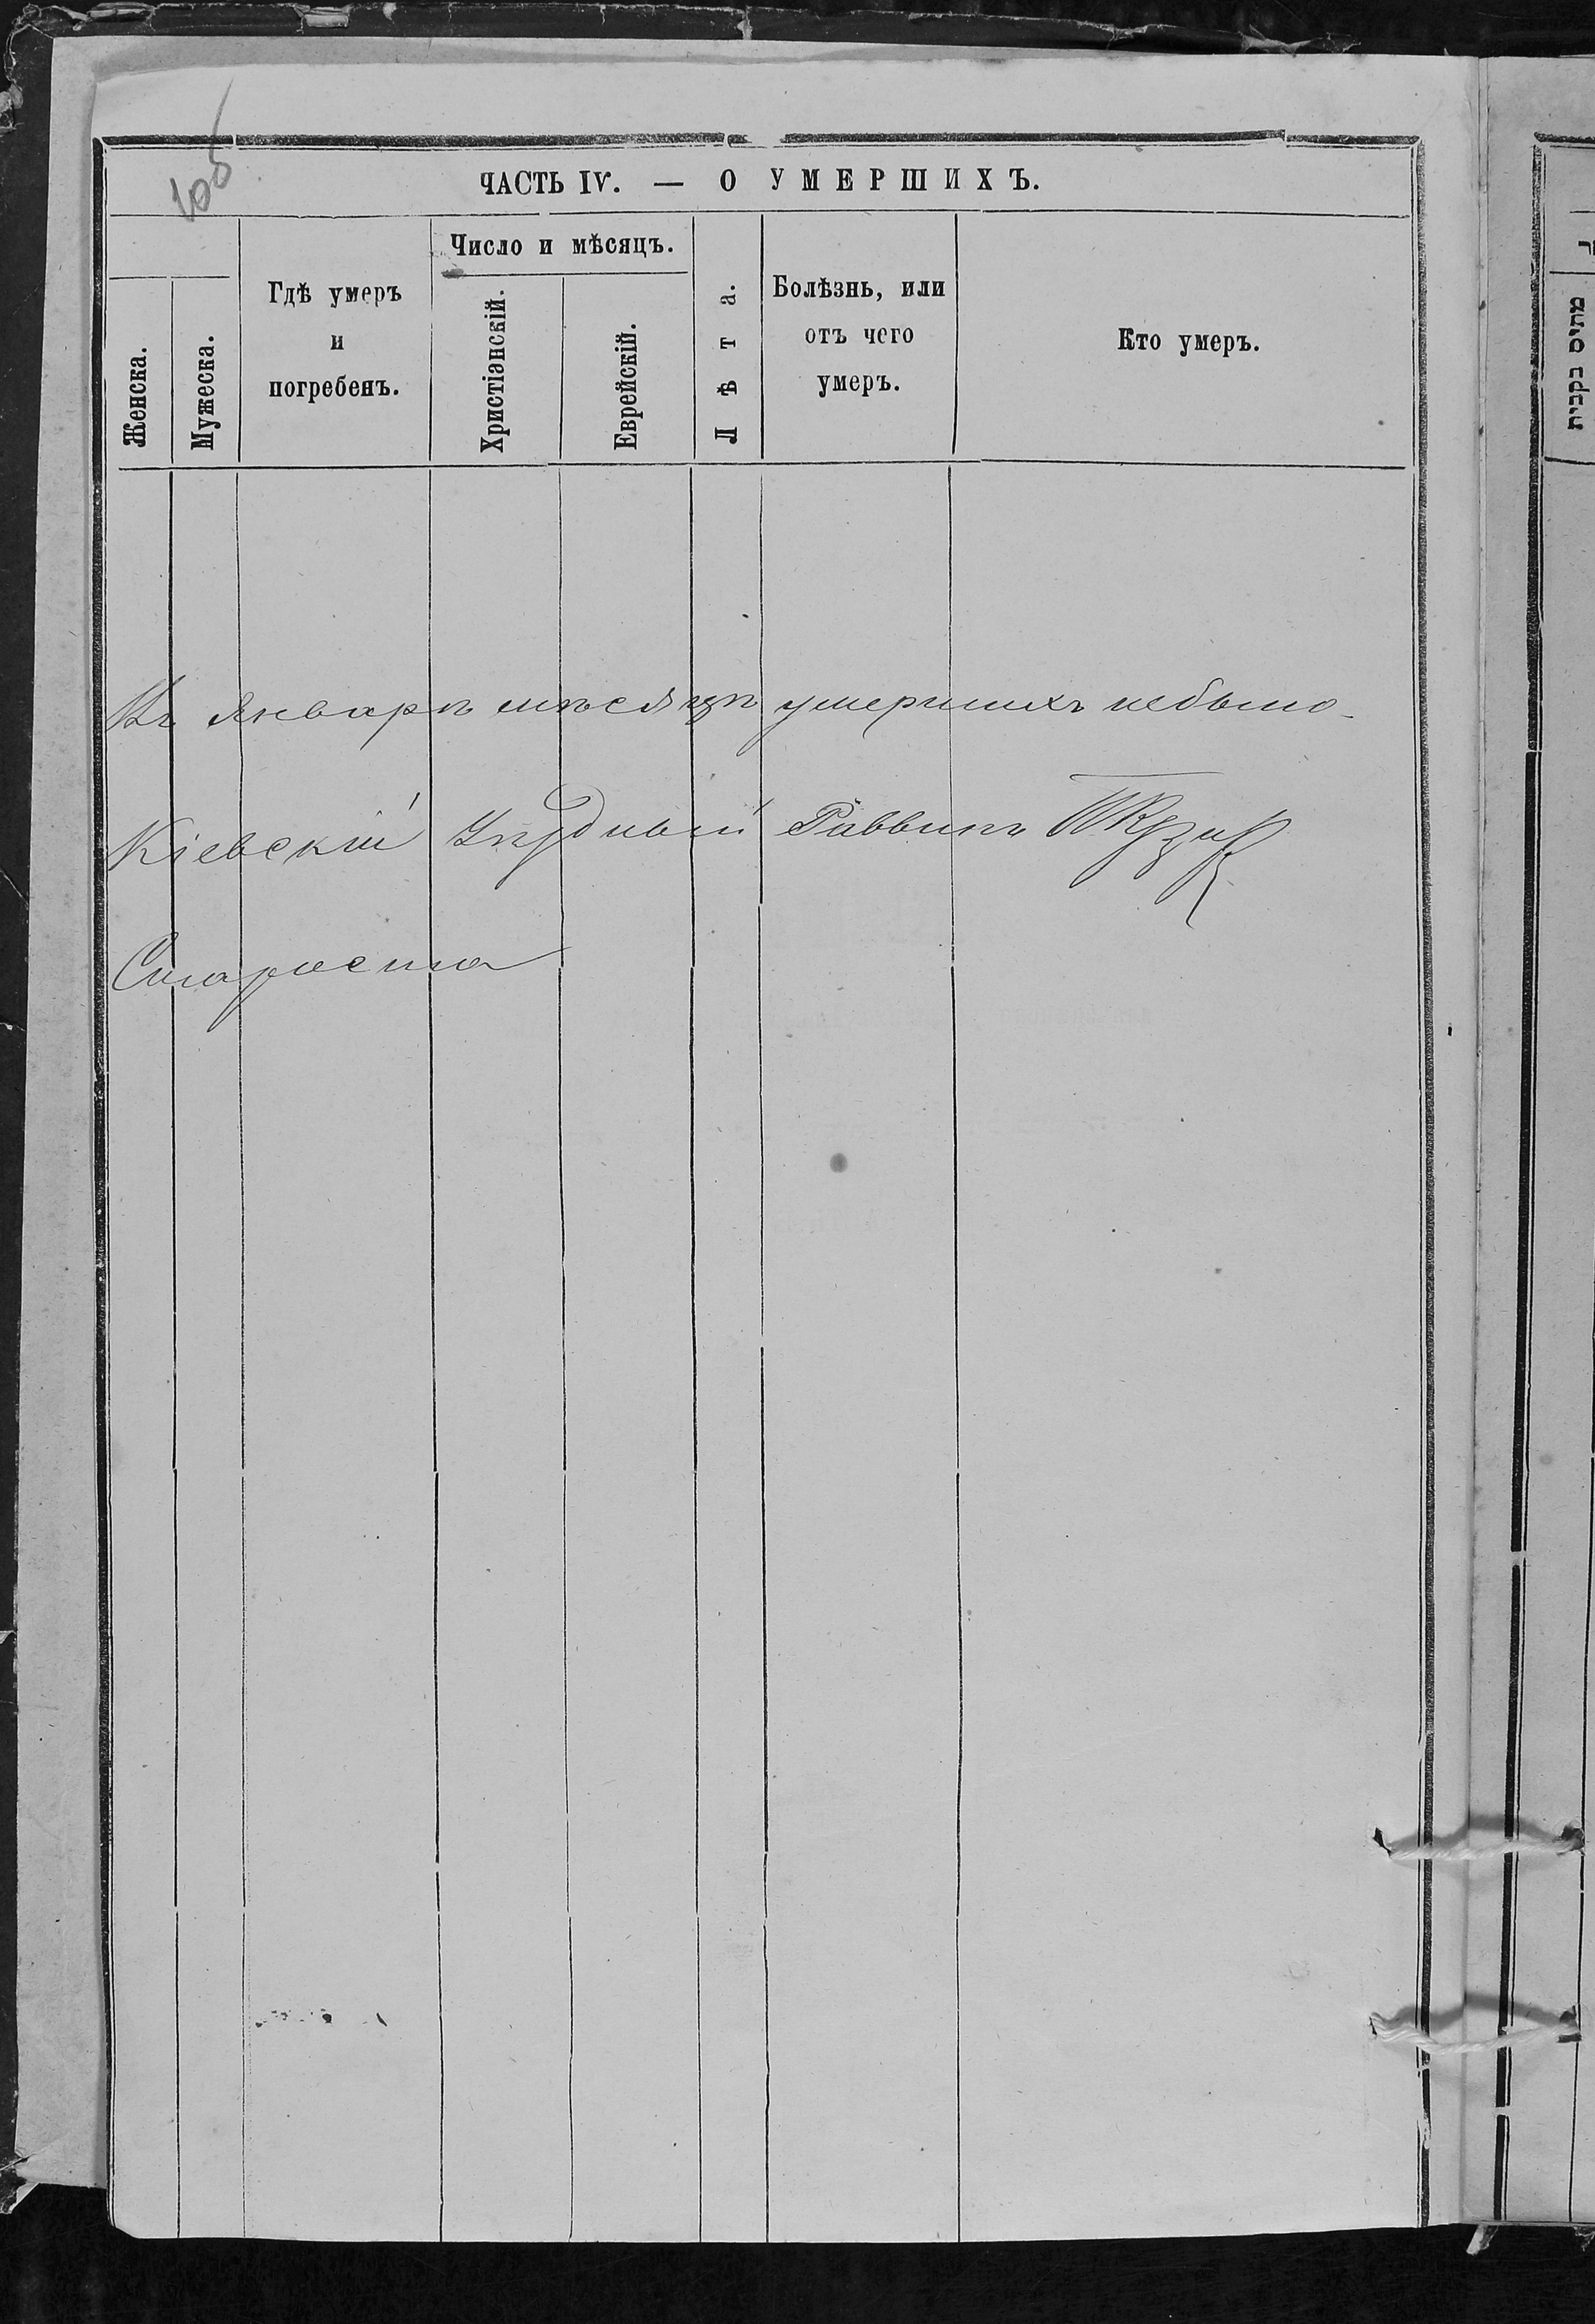 ЧАСТЬ IV. — О УМЕРШИХЪ.
Женска.
Мужеска.
Гдѣ умеръ
и
погребенъ.
Число и мѣсяцъ.
Христіанскій.
Еврейскій.
Лѣта.
Болѣзнь, или
отъ чего
умеръ.
Кто умеръ.
Въ январѣ мѣсяцѣ умершихъ небыло
Кіевскій Уѣздный Раввинъ
Староста
מתים נקבית